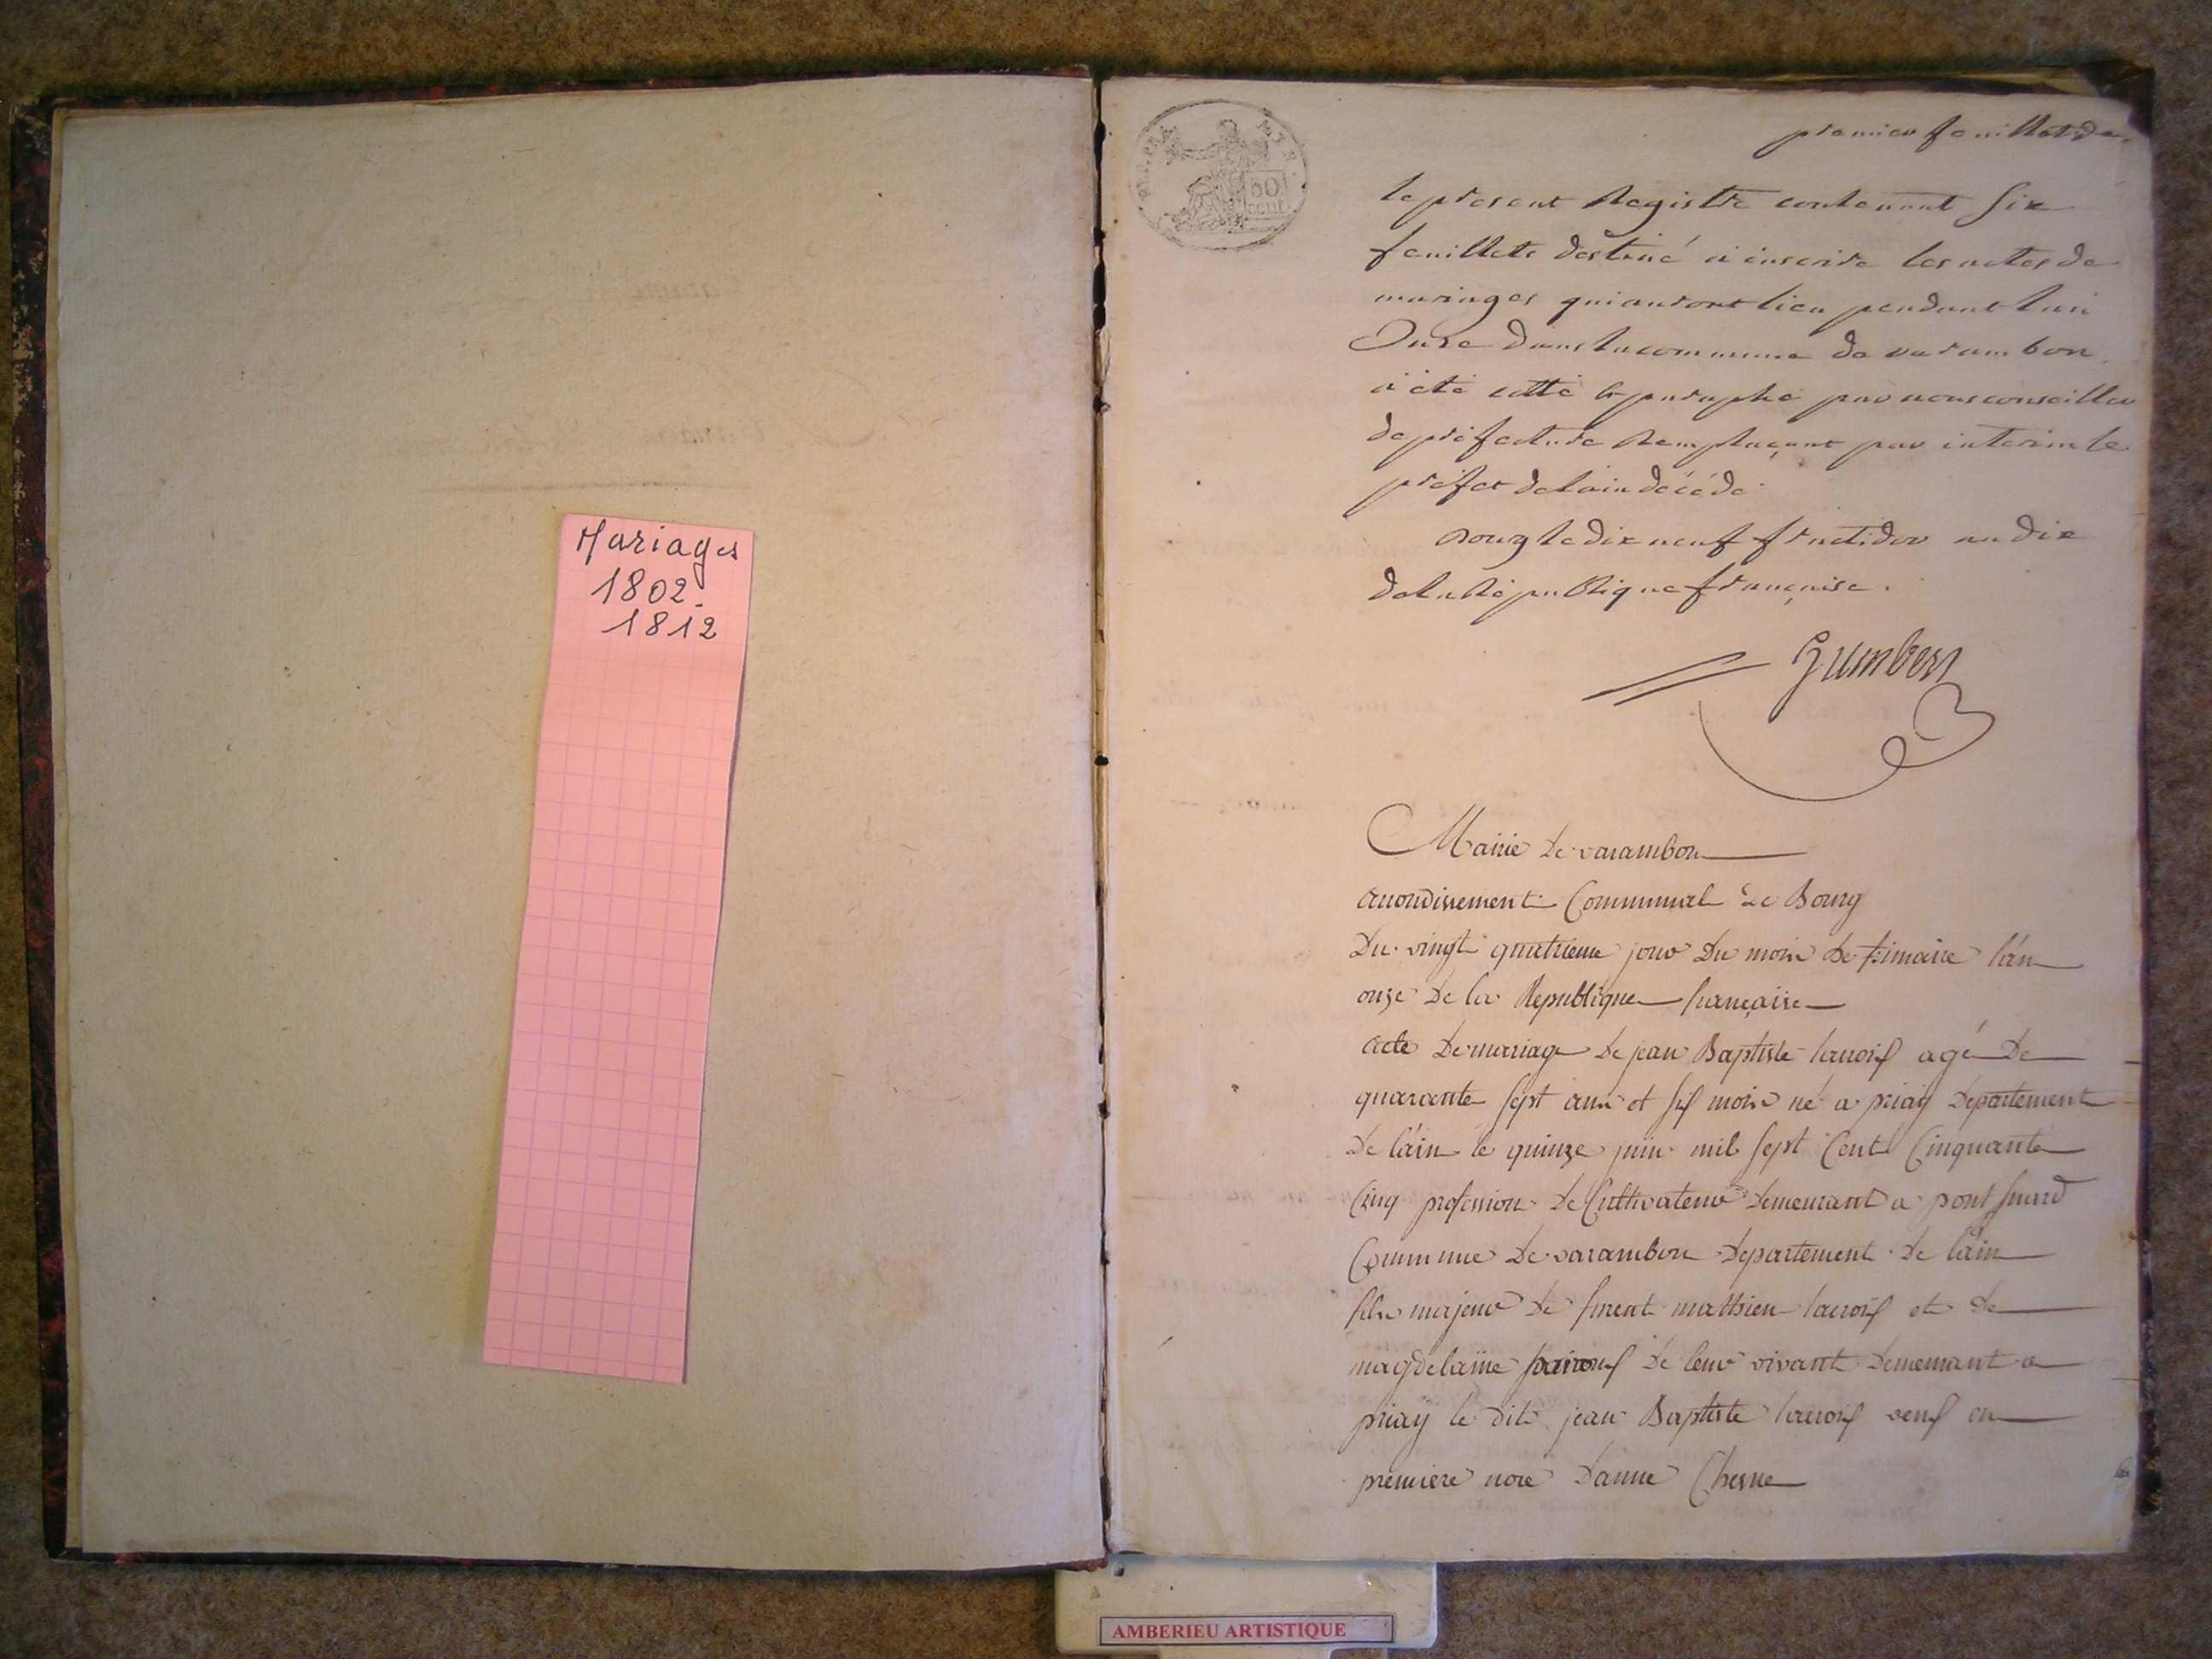 Mariages
1802.
1812
50
cent.
premier feuillet de
le present Registre contenant six
feuillets destiné a inscrire les actes de
mariages qui auront lieu pendant l'an
Onze dans la commune de varambon
a été cotté & paraphé par nous conseiller
de préfecture Remplaçant par interim le
préfet de l'ain décédé
Bourg le dix neuf fructidor an dix
de la République française.
Mairie de varambon
arrondissement Communal de Bourg
Du vingt quatrieme jour du mois de frimaire l'an
onze de la Republique française
acte de mariage de jean Baptiste lacroix agé de
quarante sept ans et six mois né a priay departement
de l'ain le quinze juin mil sept Cent Cinquante
Cinq profession de Cultivateur demeurant a pont
Commune de varambon departement de l'ain
fils majeur de furent matthieu lacroix et de
magdelaine de leur vivant demeurant a
priaÿ le dit jean Baptiste lacroix veuf en
premiere noce d'anne Chesne
AMBERIEU ARTISTIQUE